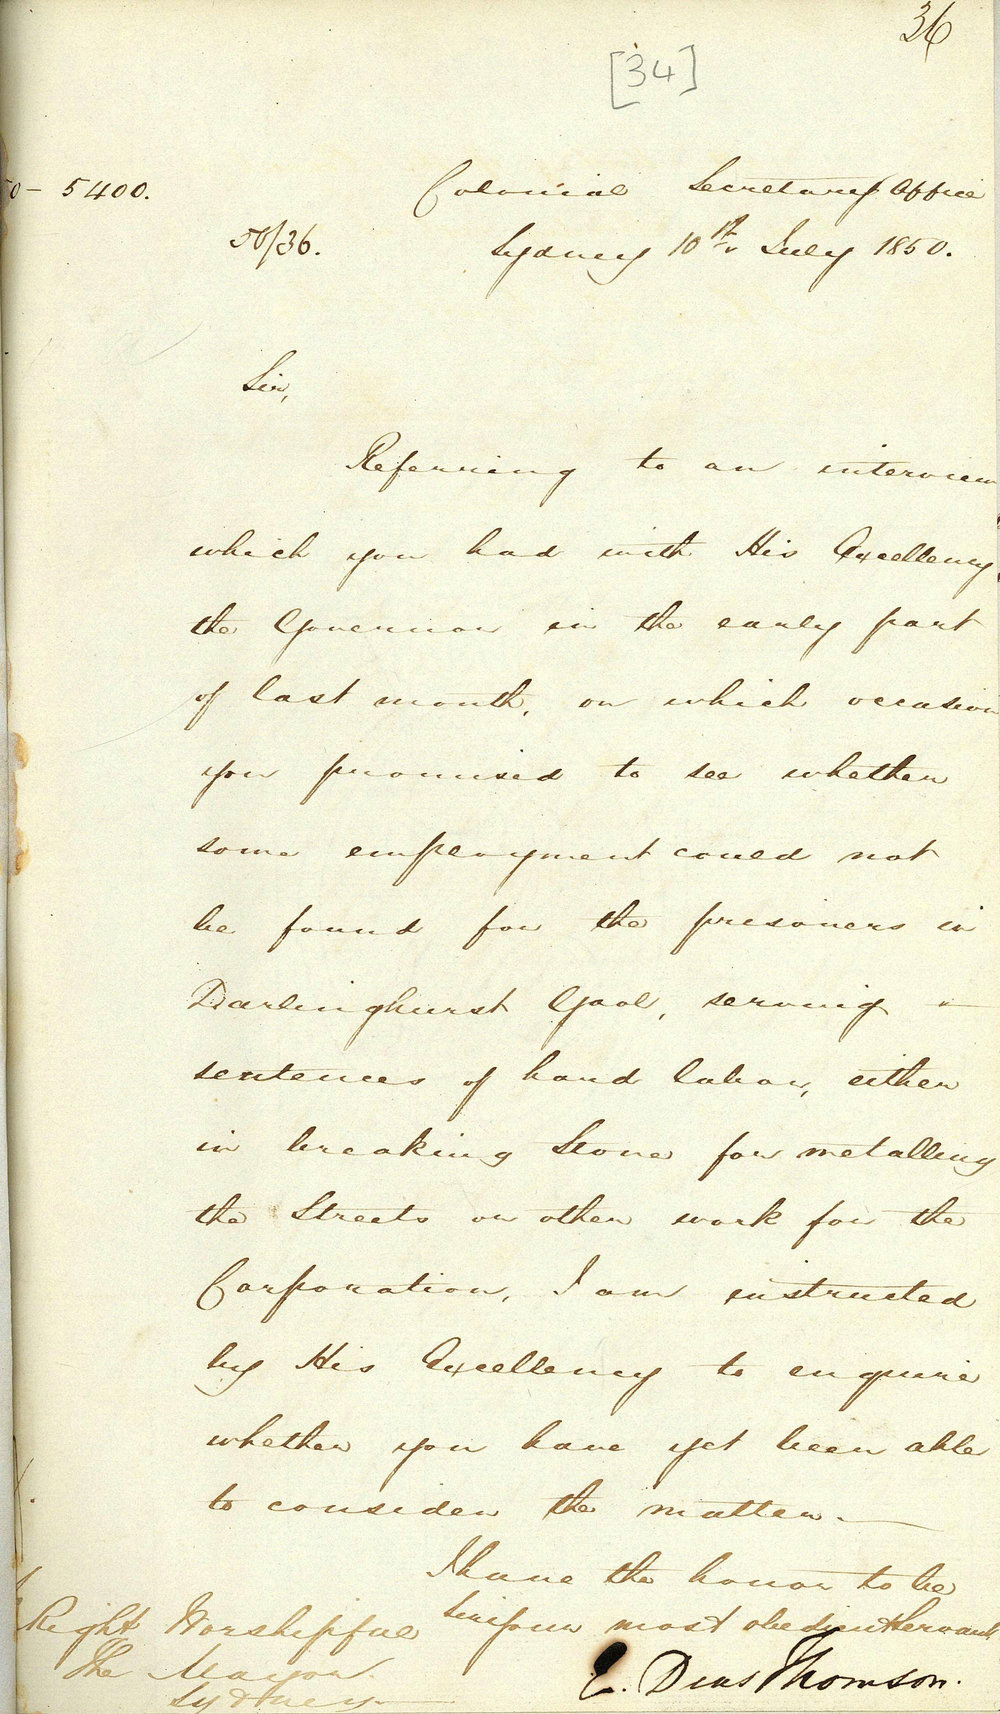 36
[34]
50-5400.
Colonial Secretary's Office
50/36.
Sydney 10th July 1850.
Sir,
Referring to an interview
which you had with His Excellency
the Governor in the early part
of last month, on which occasion
you promised to see whether
some employment could not
be found for the prisoners in
Darlinghurst Gaol, serving
sentences of hard labor, either
in breaking Stone for metalling
the Streets or other work for the
Corporation, I am instructed
by His Excellency to enquire
whether you have yet been able
to consider the matter.
I have the honor to be
Sir your most obedient Servant
E. Deas Thomson.
Right Worshipful
The Mayor
Sydney